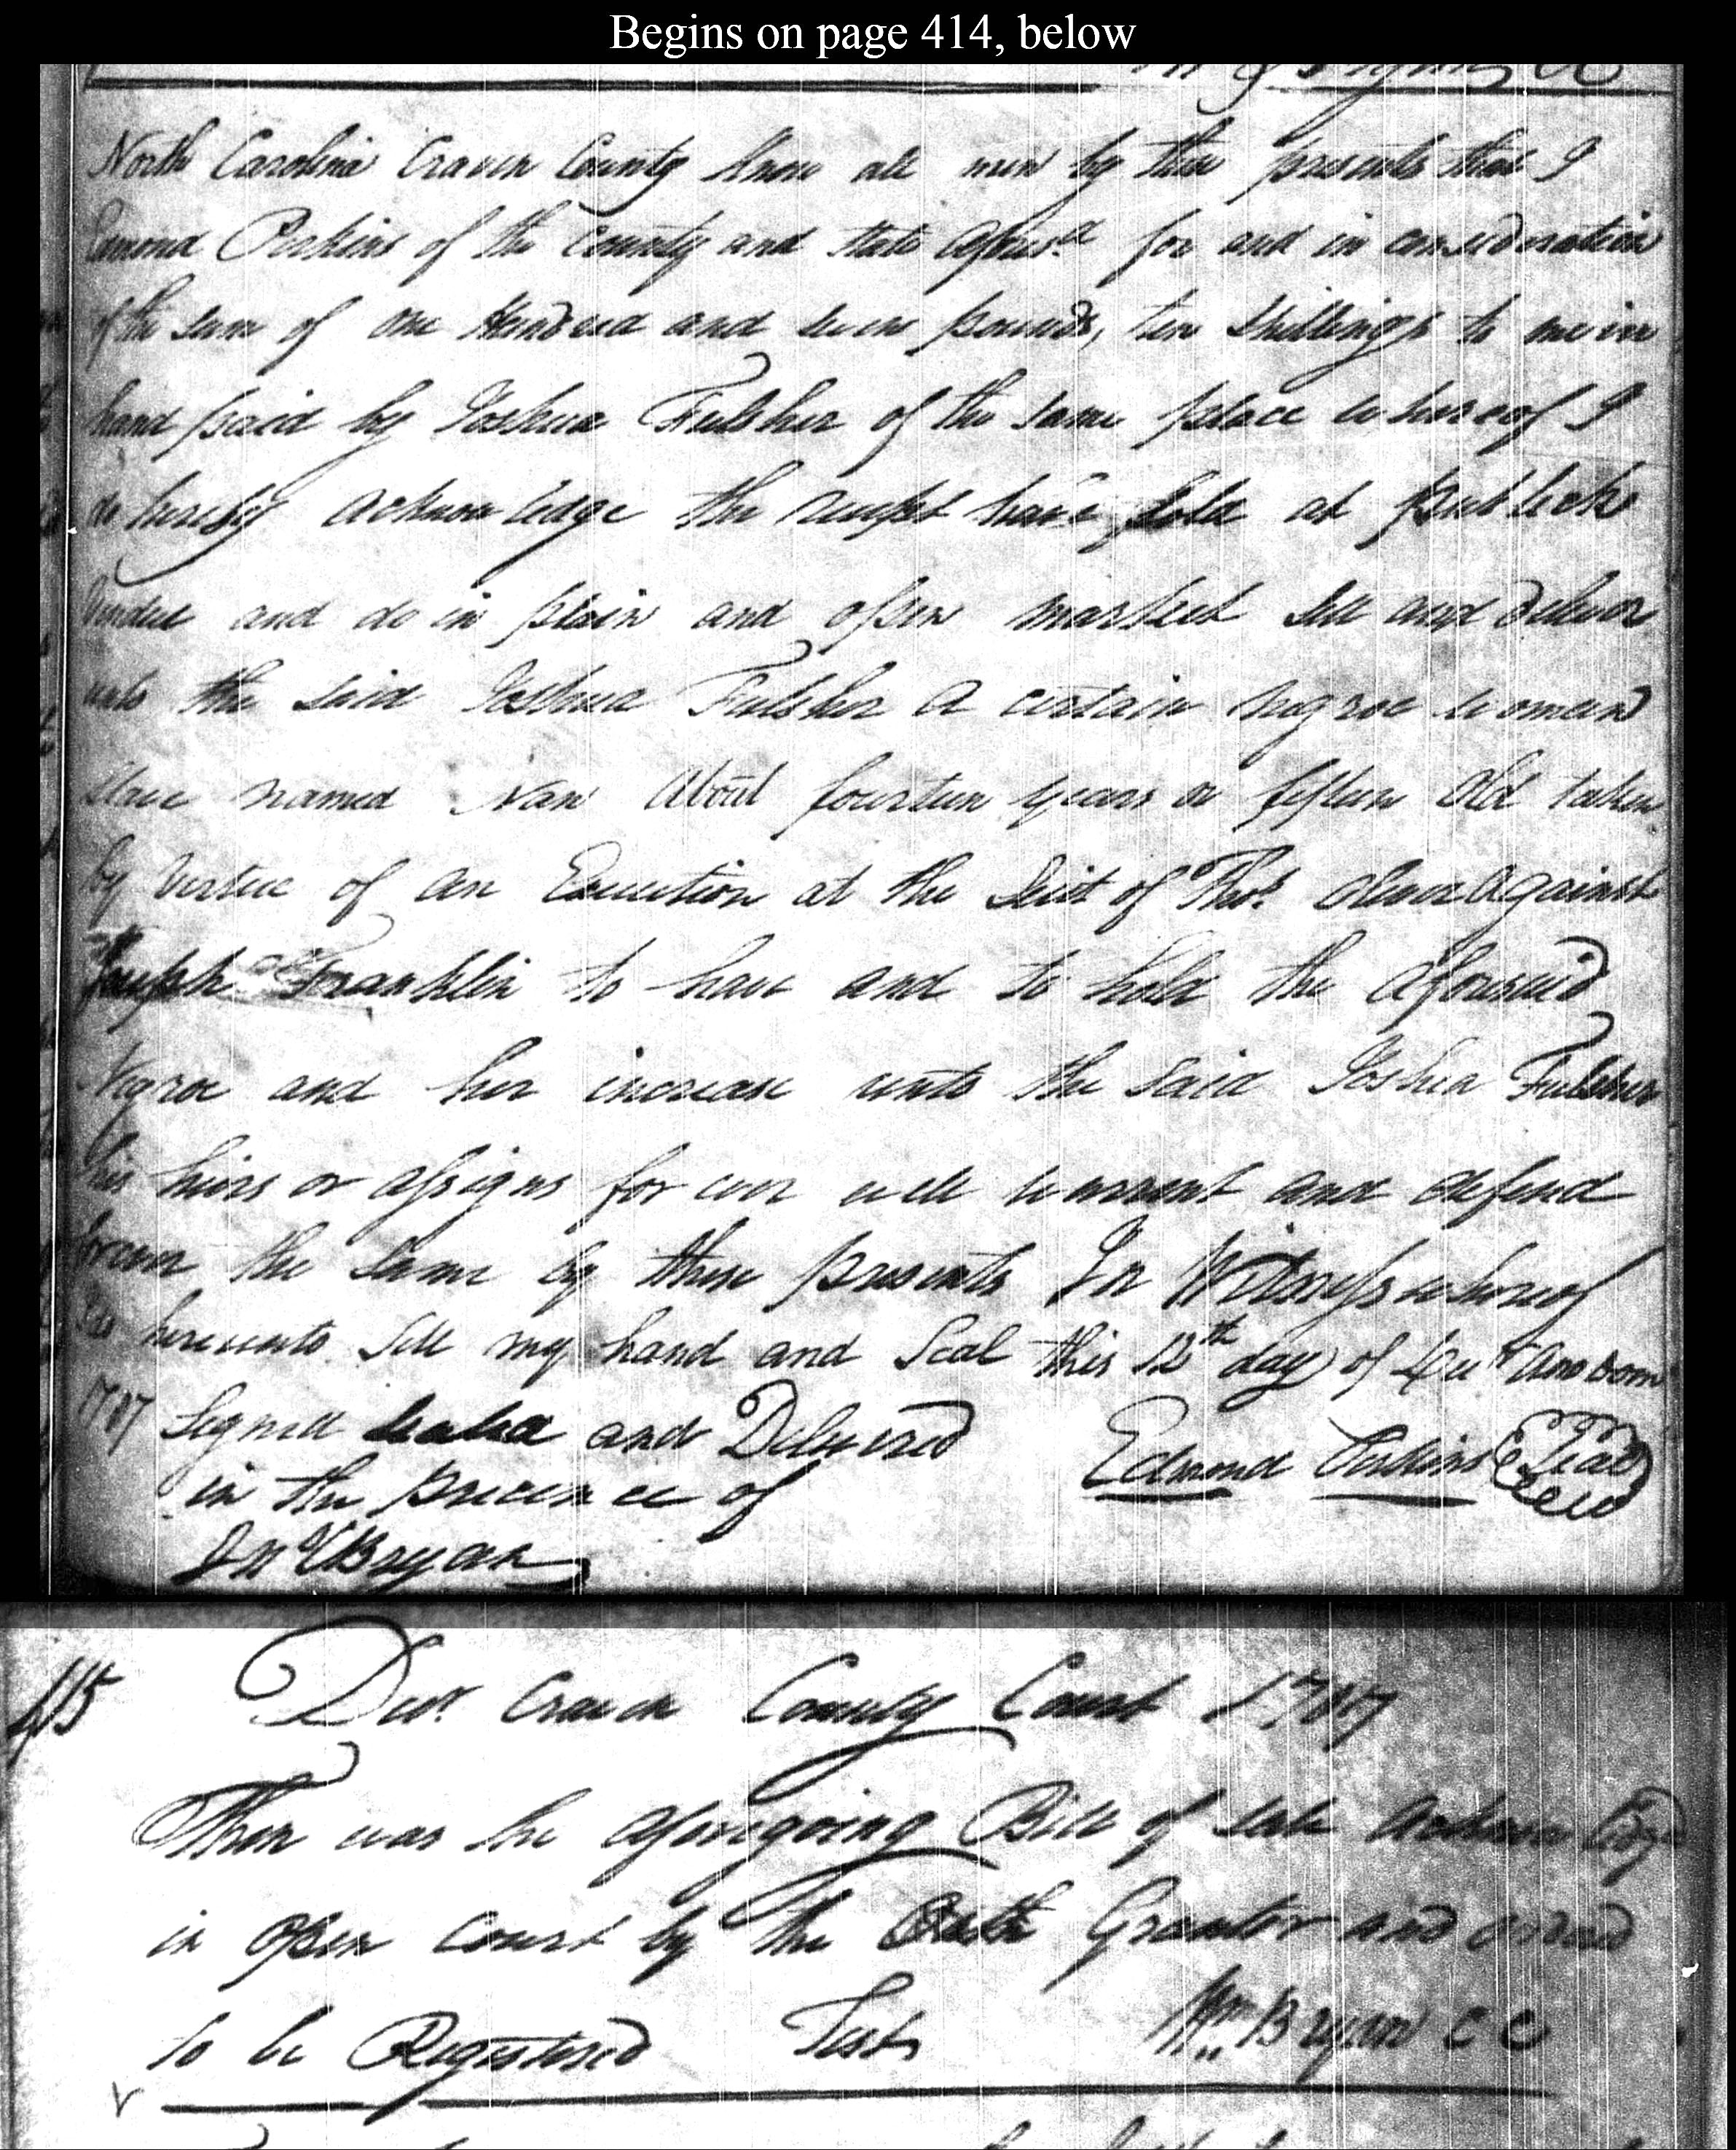 Begins on page 414, below
North Carolina Craven County know all men by these presents that I
Edmond Perkins of the County and State afores.d for and in consideration
of the sum of one Hundred and seven pounds, ten Shillings to me in
hand paid by Joshua Fulsher of the same place whereof I
do hereby acknowledge the receipt have sold at publick
Vendue and do in plain and open market sell and deliver
unto the said Joshua Fulsher a certain Negroe woman
slave named Nan about fourteen years or fifteen old taken
by virtue of an Execution at the Suit of Thos. Oliver against
Joseph Franklin to have and to hold the aforesaid
Negroe and her increase unto the said Joshua Fulsher
his hiers or assigns for ever will warrant and defend
forever the same by these presents In Witness whereof
hereunto sett my hand and Seal this 12th day of Anno Dom
1787 Signed sealed and Delivered
Edmond Perkins Seal
in the precence of
Jn.o Bryan
415 Decr. Craven County Court 1787
Then was the aforegoing Bill of sale
in open Court by the Grantor and ordered
to be Registered Test Wm. Bryan CC